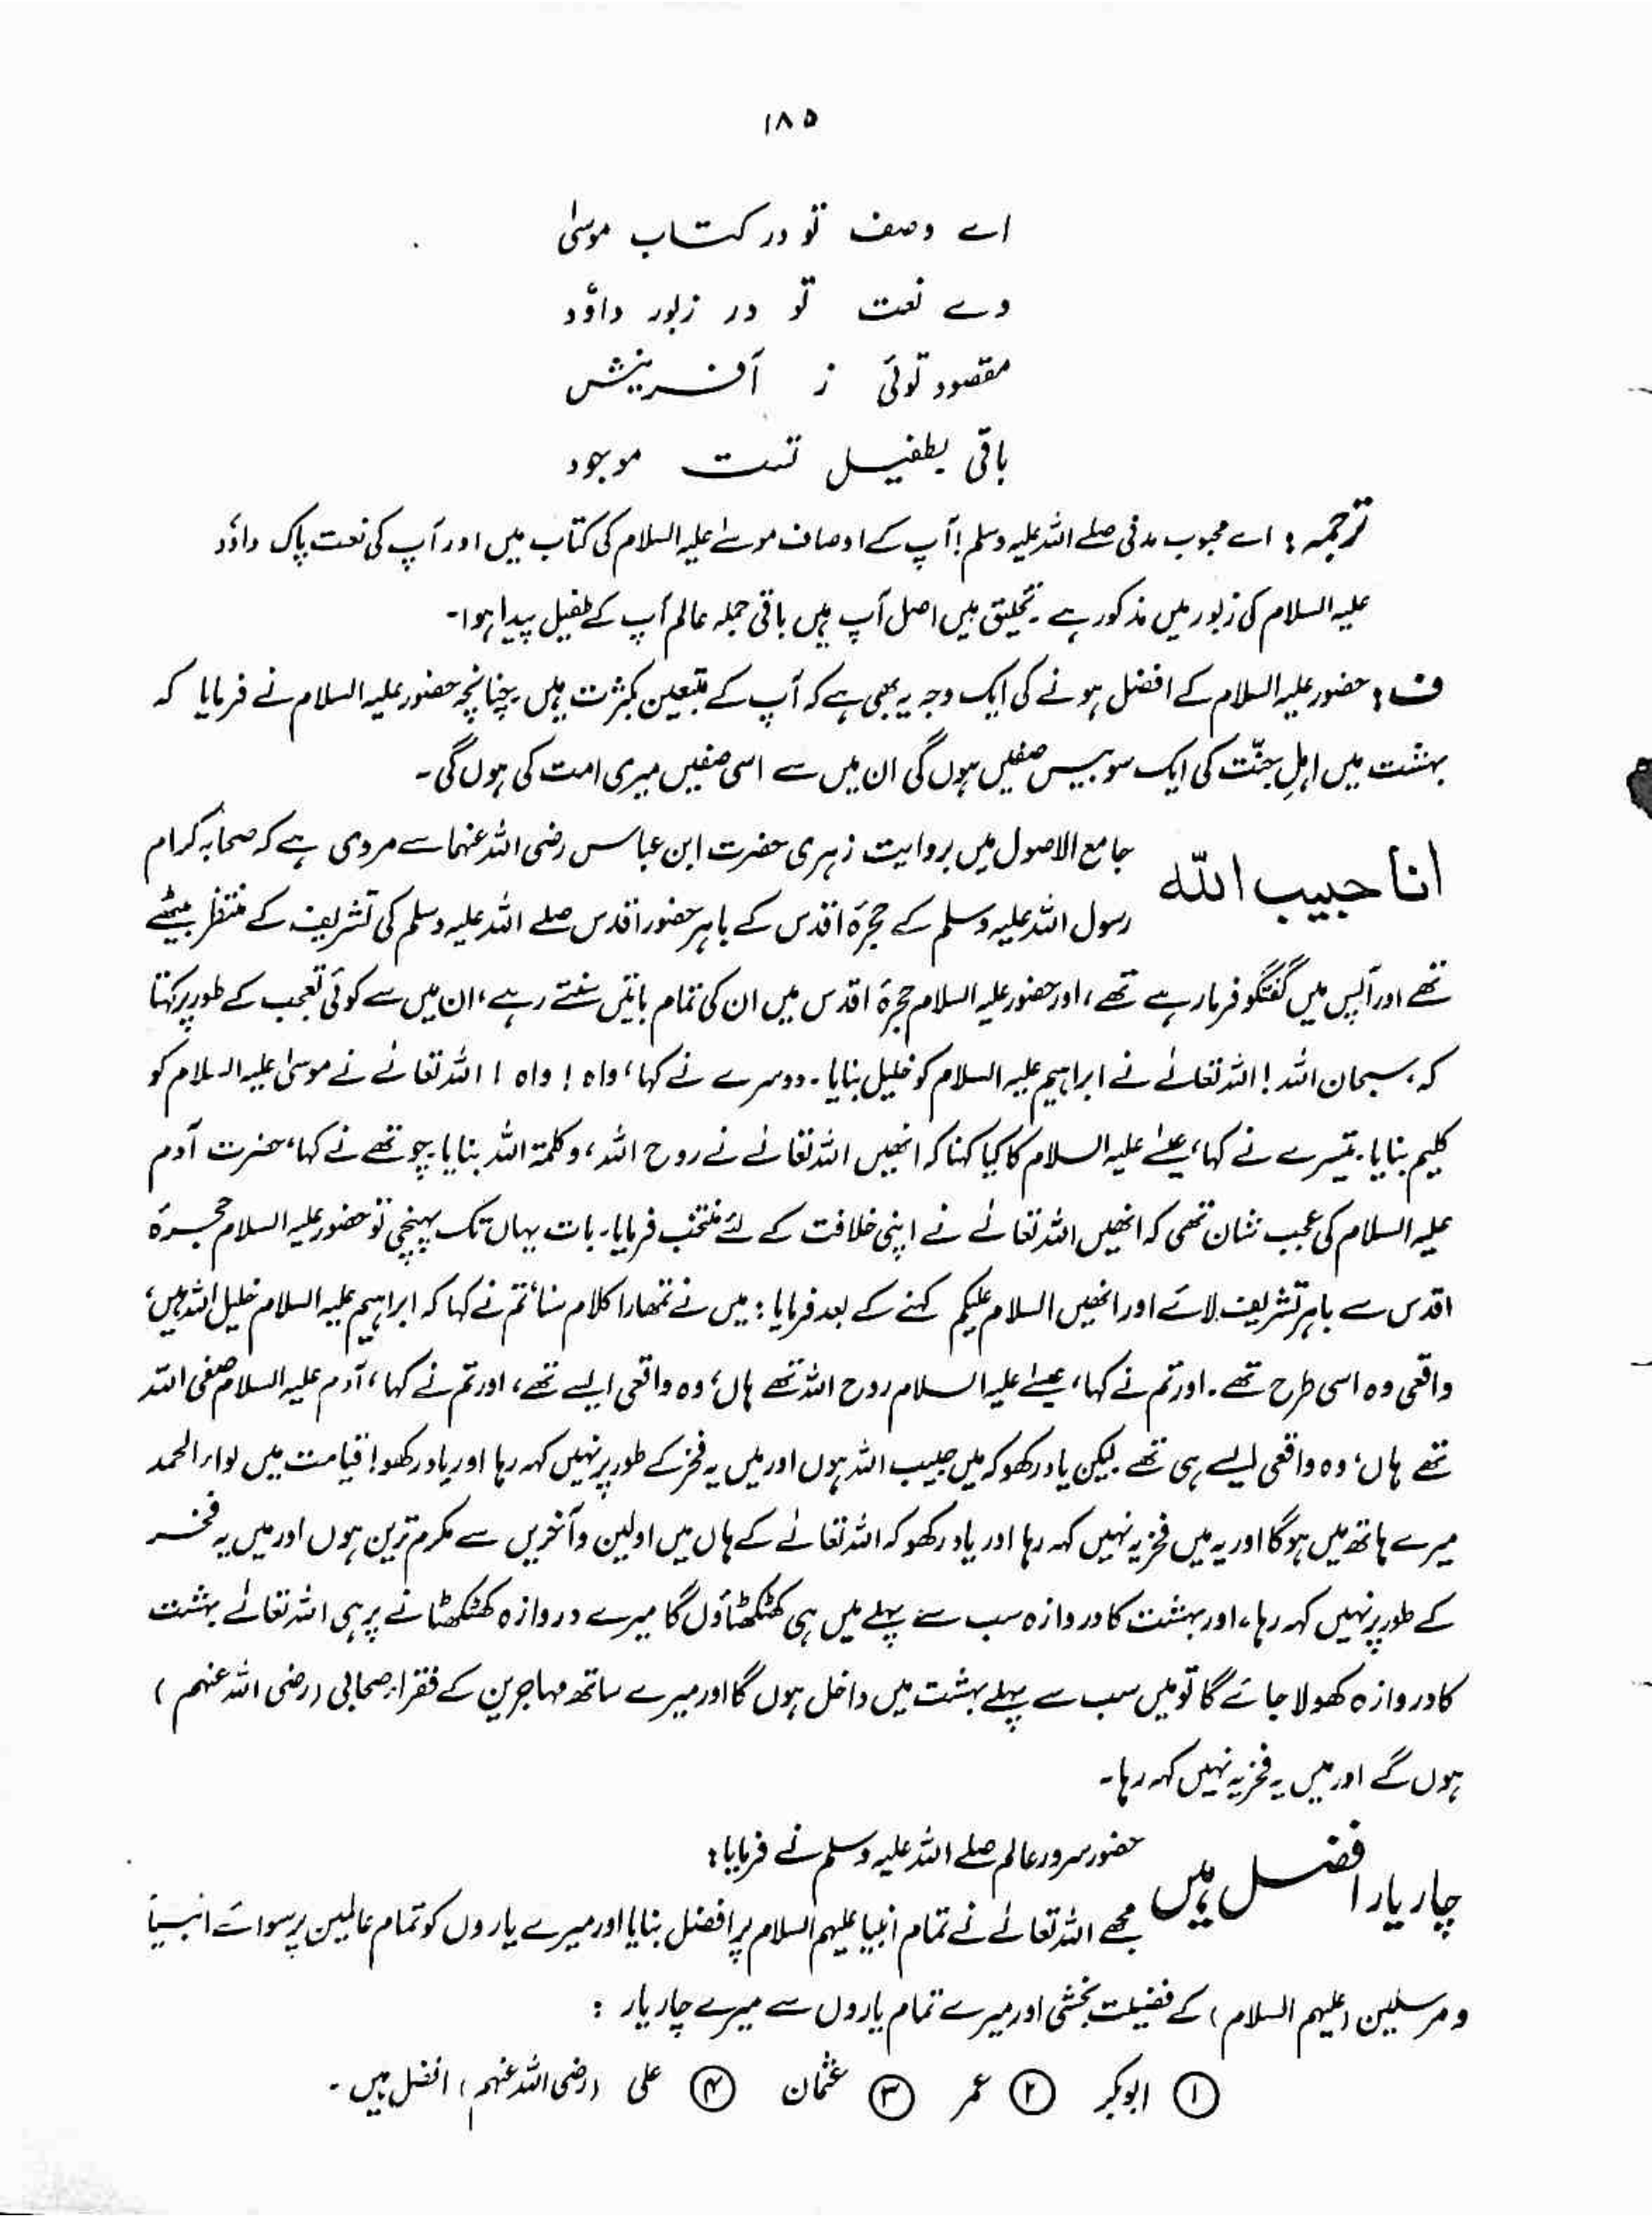 ۱۸۵
اے وصف تو در کتاب موسیٰ
وے نعت تو در زبور داؤد
مقصود توئی ز آفرینش
باقی بطفیل تست موجود
ترجمہ: اے محبوب مدنی صلے اللہ علیہ وسلم! آپ کے اوصاف موسےٰ علیہ السلام کی کتاب میں اور آپ کی نعت پاک داؤد
علیہ السلام کی زبور میں مذکور ہے۔ تخلیق میں اصل آپ ہیں باقی جملہ عالم آپ کے طفیل پیدا ہوا۔
ف: حضور علیہ السلام کے افضل ہونے کی ایک وجہ یہ بھی ہے کہ آپ کے متبعین بکثرت ہیں۔ چنانچہ حضور علیہ السلام نے فرمایا کہ
بہشت میں اہلِ جنّت کی ایک سو بیس صفیں ہوں گی ان میں سے اسی صفیں میری امت کی ہوں گی۔
انا حبیب اللہ
جامع الاصول میں بروایت زہری حضرت ابن عباس رضی اللہ عنہما سے مروی ہے کہ صحابہ کرام
رسول اللہ علیہ وسلم کے حجرۂ اقدس کے باہر حضور اقدس صلے اللہ علیہ وسلم کی تشریف کے منتظر بیٹھے
تھے اور آپس میں گفتگو فرما رہے تھے، اور حضور علیہ السلام حجرۂ اقدس میں ان کی تمام باتیں سنتے رہے، ان میں سے کوئی تعجب کے طور پر کہتا
کہ، سبحان اللہ! اللہ تعالےٰ نے ابراہیم علیہ السلام کو خلیل بنایا۔ دوسرے نے کہا، واہ! واہ! اللہ تعالےٰ نے موسیٰ علیہ السلام کو
کلیم بنایا۔ تیسرے نے کہا، عیسےٰ علیہ السلام کا کیا کہنا کہ انھیں اللہ تعالےٰ نے روح اللہ، و کلمۃ اللہ بنایا۔ چوتھے نے کہا، حضرت آدم
علیہ السلام کی عجب شان تھی کہ انھیں اللہ تعالےٰ نے اپنی خلافت کے لئے منتخب فرمایا۔ بات یہاں تک پہنچی تو حضور علیہ السلام حجرۂ
اقدس سے باہر تشریف لائے اور انھیں السلام علیکم کہنے کے بعد فرمایا: میں نے تمھارا کلام سنا، تم نے کہا کہ ابراہیم علیہ السلام خلیل اللہ ہیں،
واقعی وہ اسی طرح تھے۔ اور تم نے کہا، عیسےٰ علیہ السلام روح اللہ تھے ہاں، وہ واقعی ایسے تھے، اور تم نے کہا، آدم علیہ السلام صفی اللہ
تھے ہاں، وہ واقعی ایسے ہی تھے لیکن یاد رکھو کہ میں حبیب اللہ ہوں اور میں یہ فخر کے طور پر نہیں کہہ رہا اور یاد رکھو! قیامت میں لواء الحمد
میرے ہاتھ میں ہوگا اور یہ میں فخریہ نہیں کہہ رہا اور یاد رکھو کہ اللہ تعالےٰ کے ہاں میں اولین و آخریں سے مکرم ترین ہوں اور میں یہ فخر
کے طور پر نہیں کہہ رہا، اور بہشت کا دروازہ سب سے پہلے میں ہی کھٹکھٹاؤں گا میرے دروازہ کھٹکھٹانے پر ہی اللہ تعالےٰ بہشت
کا دروازہ کھولا جائے گا تو میں سب سے پہلے بہشت میں داخل ہوں گا اور میرے ساتھ مہاجرین کے فقراء صحابی (رضی اللہ عنہم)
ہوں گے اور میں یہ فخریہ نہیں کہہ رہا۔
چار یار افضل ہیں
حضور سرور عالم صلے اللہ علیہ وسلم نے فرمایا:
مجھے اللہ تعالےٰ نے تمام انبیا علیہم السلام پر افضل بنایا اور میرے یاروں کو تمام عالمین پر سوائے انبیا
و مرسلین (علیہم السلام) کے فضیلت بخشی اور میرے تمام یاروں سے میرے چار یار:
① ابوبکر ② عمر ③ عثمان ④ علی (رضی اللہ عنہم) افضل ہیں۔